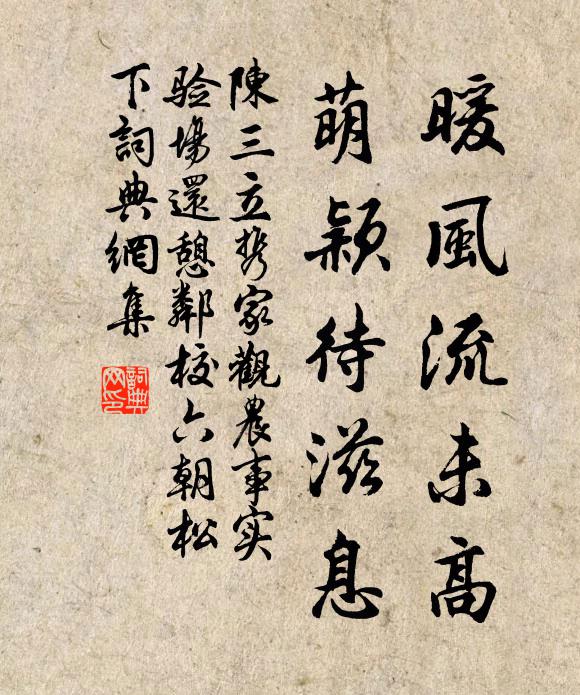 暖風流未高
萌颖待滋息
陳三立携家觀農事实
验場還憩鄰校六朝松
下詞典網集
詞典
网印